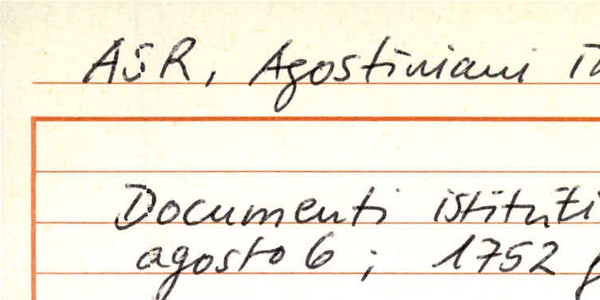 ASR, Agostiniani
Documenti istituti
agosto 6 ; 1752